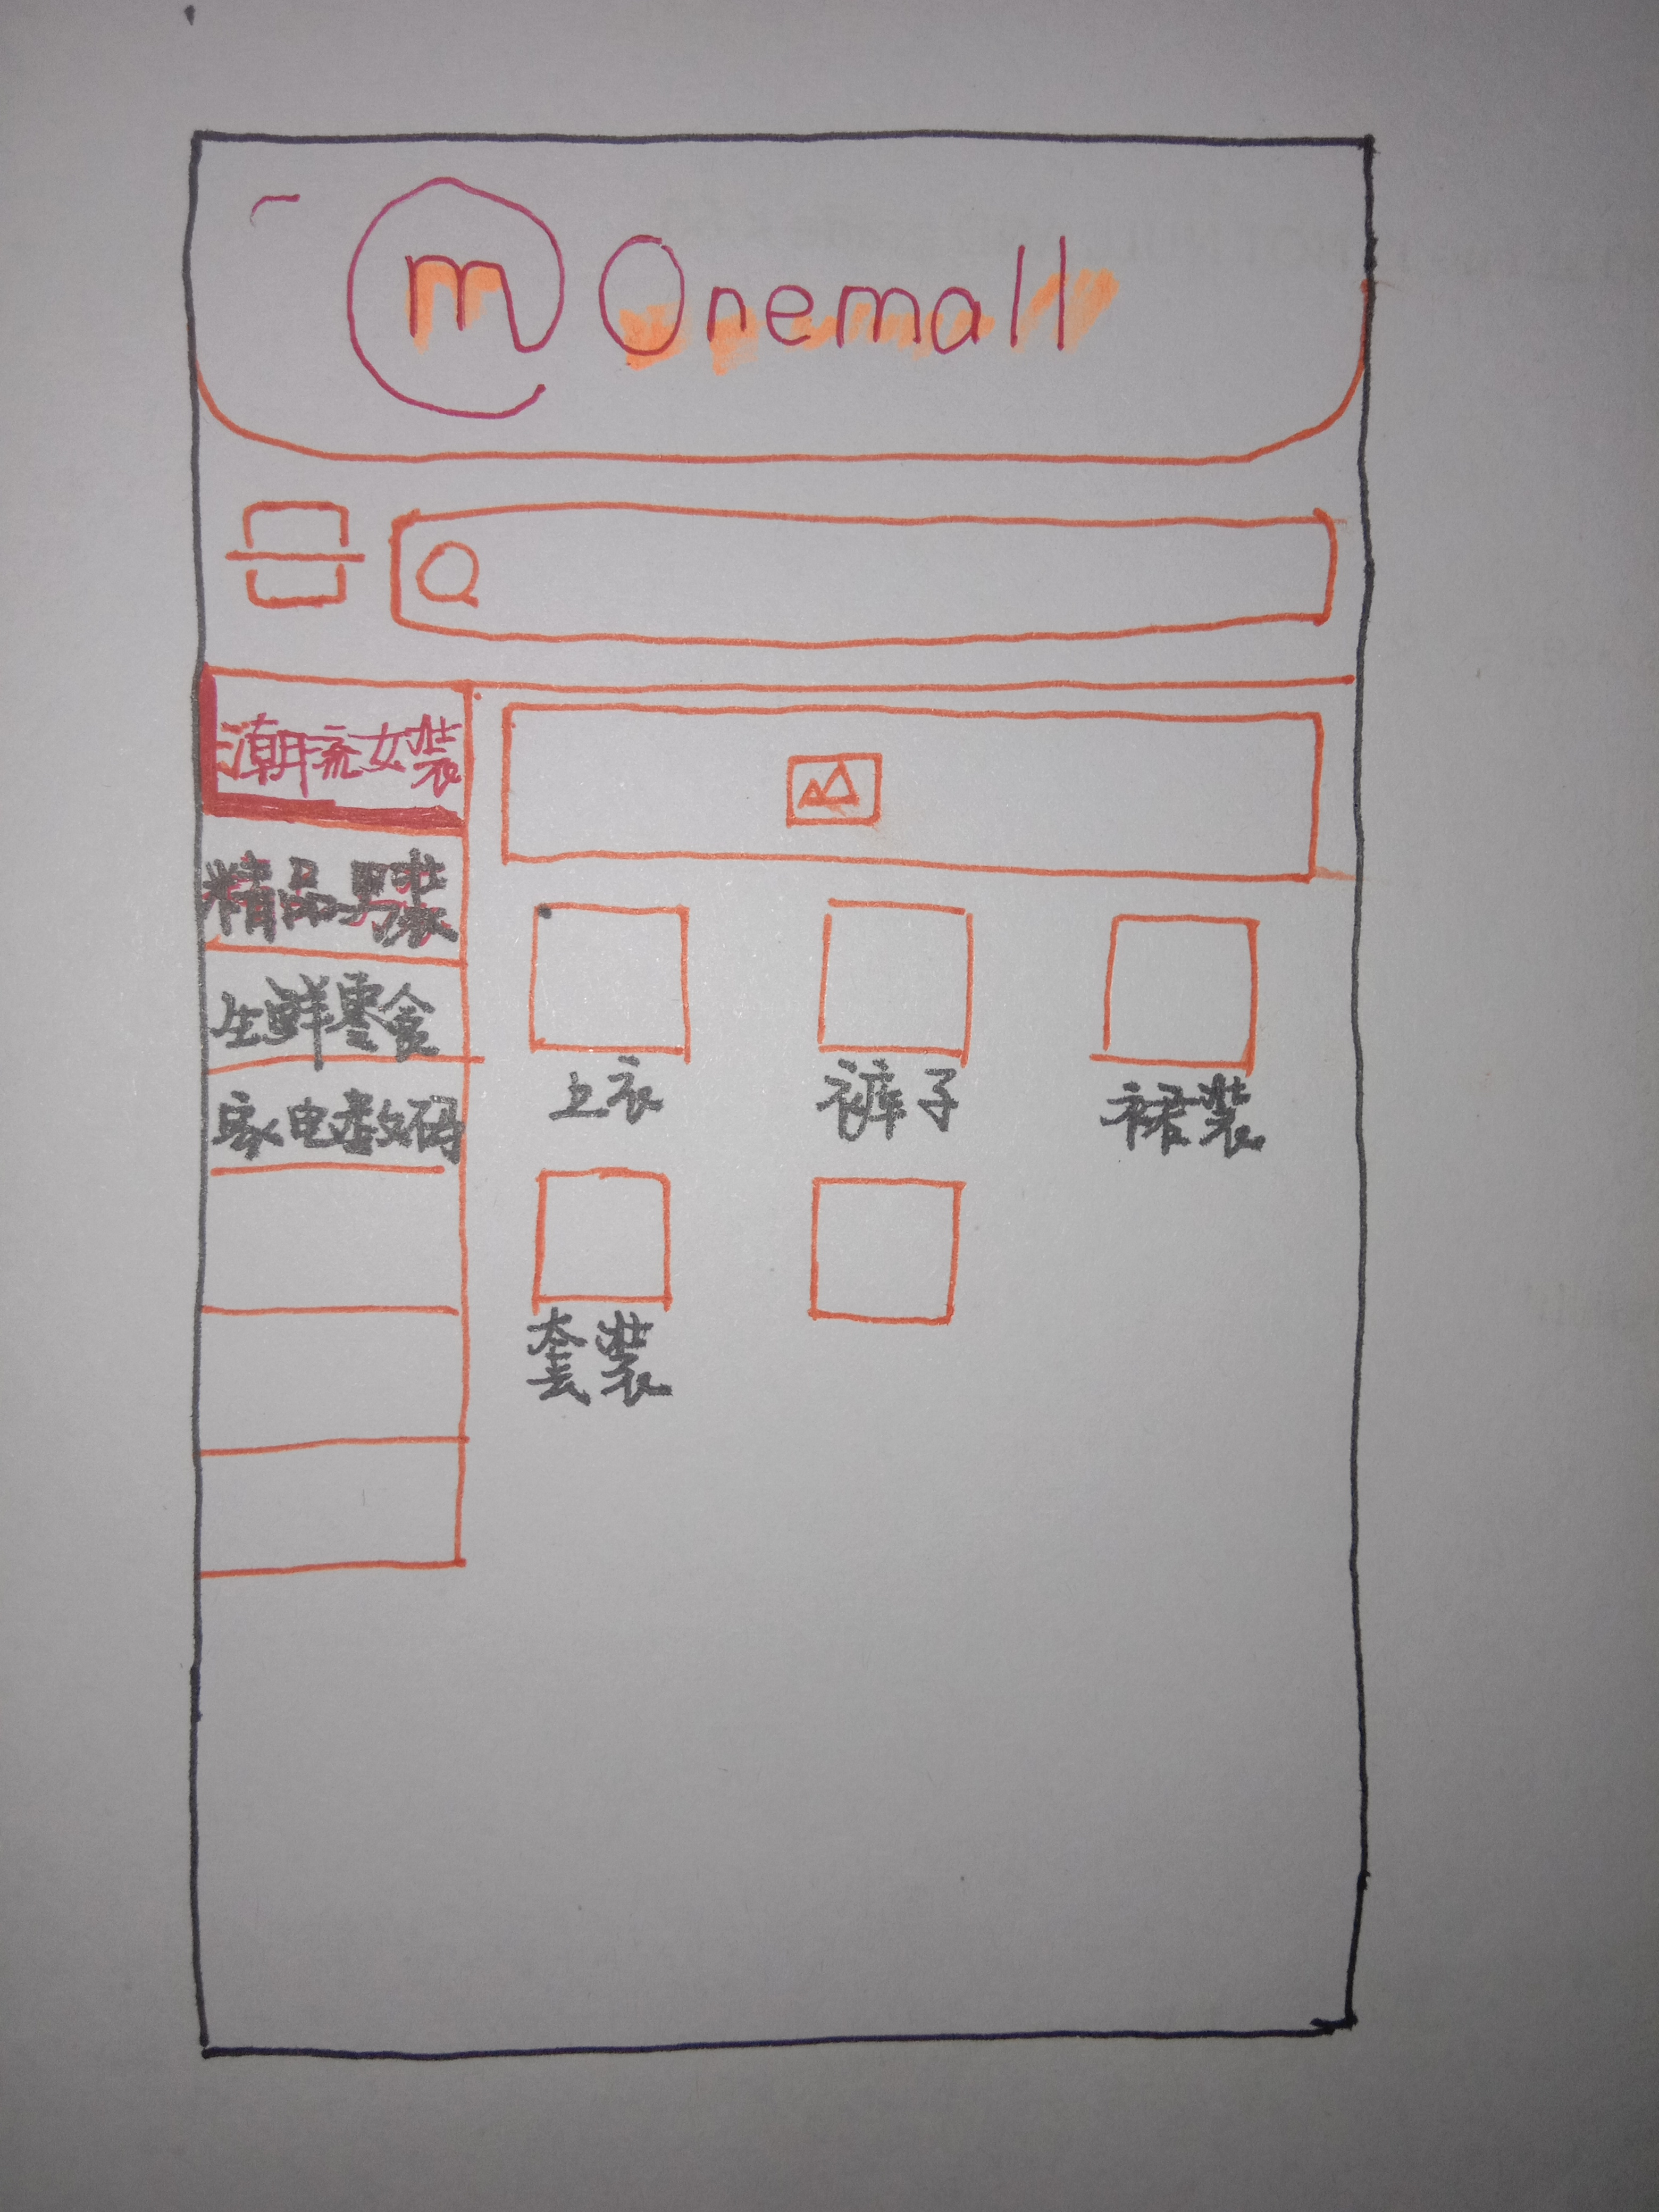 m Onemall
潮流女装
精品男装
生鲜零食
家电数码
上衣 裤子 裙装
套装